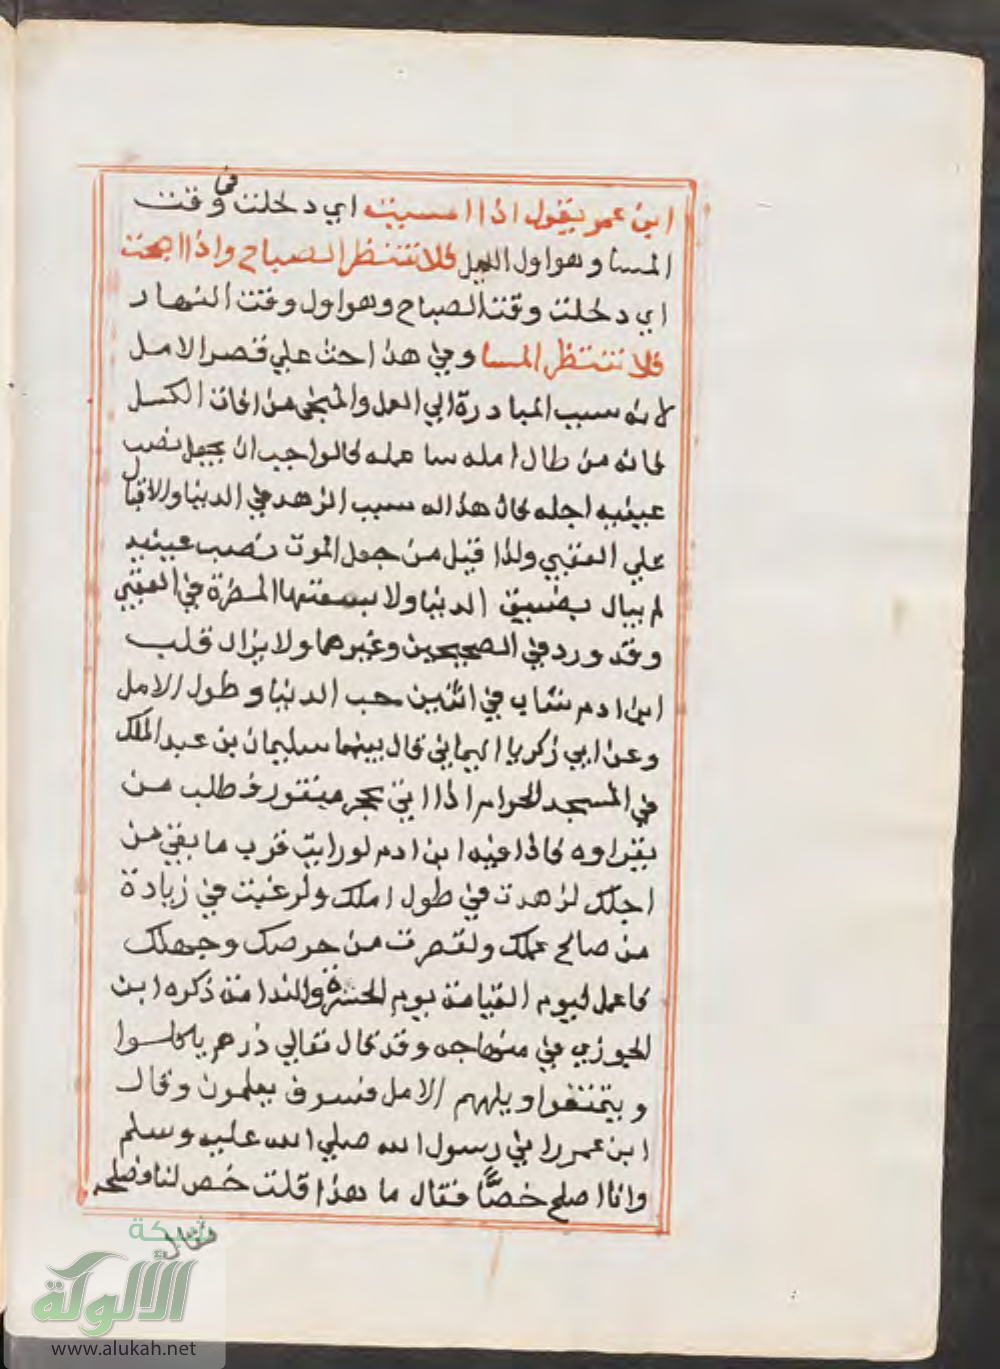 ابن عمر يقول اذا امسيت اي دخلت في وقت
المسا وهو اول الليل فلا تنتظر الصباح واذا اصبحت
اي دخلت وقت الصباح وهو اول وقت النهار
فلا تنتظر المسا وفي هذا حث علي قصر الامل
لانه سبب المبادرة الي العمل والمنجي من افات الكسل
فانه من طال امله سا عمله فالواجب ان يجعل نصب
عينيه اجله فان هذا له سبب الزهد في الدنيا والاقبال
علي العقبي ولذا قيل من جعل الموت نصب عينيه
لم يبال بضيق الدنيا ولا بسعتها المضرة في العقبي
وقد ورد في الصحيحين وغيرهما ولا يزال قلب
ابن ادم شاب في اثنين حب الدنيا وطول الامل
وعن ابي زكريا اليماني قال بينما سليمان بن عبد الملك
في المسجد الحرام اذا اتي بحجر منقور فطلب من
يقراوه فاذا فيه ابن ادم لو رايت قرب ما بقي من
اجلك لزهدت في طول املك ولرغبت في زيادة
من صالح عملك ولقصرت من حرصك وجهلك
فاعمل ليوم القيامة يوم الحسرة والندامة ذكره ابن
الجوزي في منهاجه وقد قال تعالي ذرهم ياكلوا
ويتمتعوا ويلههم الامل فسوف يعلمون وقال
ابن عمر راني رسول الله صلي الله عليه وسلم
وانا اصلح خصًّا فقال ما هذا قلت خص لنا نصلحه
فقال
شبكة
الألوكة
www.alukah.net